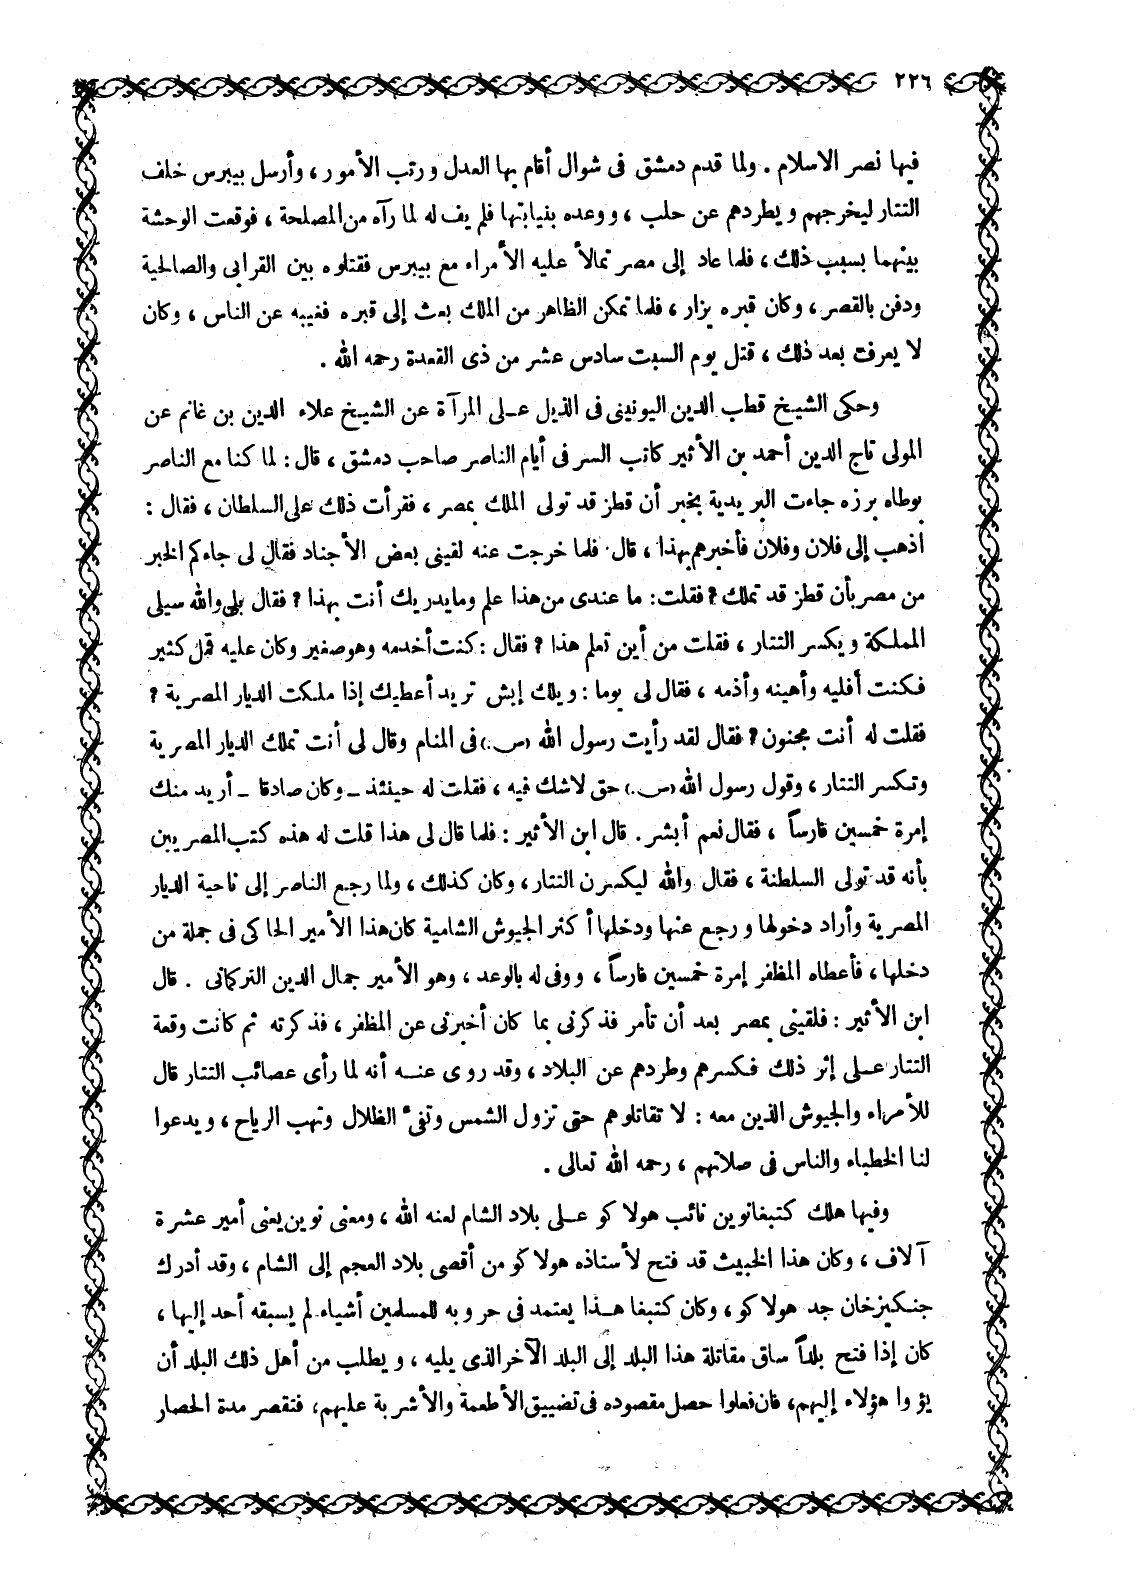 ٢٢٦
فيها نصر الاسلام . ولما قدم دمشق فى شوال أقام بها العدل ورتب الأمور ، وأرسل بيبرس خلف
التتار ليخرجهم ويطردهم عن حلب ، ووعده بنيابتها فلم يف له لما رآه من المصلحة ، فوقعت الوحشة
بينهما بسبب ذلك ، فلما عاد إلى مصر تمالأ عليه الأمراء مع بيبرس فقتلوه بين القرابى والصالحية
ودفن بالقصر ، وكان قبره يزار ، فلما تمكن الظاهر من الملك بعث إلى قبره فغيبه عن الناس ، وكان
لا يعرف بعد ذلك ، قتل يوم السبت سادس عشر من ذى القعدة رحمه الله .
وحكى الشيخ قطب الدين اليونينى فى الذيل على المرآة عن الشيخ علاء الدين بن غانم عن
المولى تاج الدين أحمد بن الأثير كاتب السر فى أيام الناصر صاحب دمشق ، قال : لما كنا مع الناصر
بوطاه برزه جاءت البريدية بخبر أن قطز قد تولى الملك بمصر ، فقرأت ذلك على السلطان ، فقال :
اذهب إلى فلان وفلان فأخبرهم بهذا ، قال فلما خرجت عنه لقينى بعض الأجناد فقال لى جاءكم الخبر
من مصر بأن قطز قد تملك ؟ فقلت : ما عندى من هذا علم وما يدريك أنت بهذا ؟ فقال بلى والله سيلى
المملكة ويكسر التتار ، فقلت من أين تعلم هذا ؟ فقال : كنت أخدمه وهو صغير وكان عليه قمل كثير
فكنت أفليه وأهينه وأذمه ، فقال لى يوما : ويلك إيش تريد أعطيك إذا ملكت الديار المصرية ؟
فقلت له أنت مجنون ؟ فقال لقد رأيت رسول الله (س.) فى المنام وقال لى أنت تملك الديار المصرية
وتكسر التتار ، وقول رسول الله (س.) حق لاشك فيه ، فقلت له حينئذ ـ وكان صادقا ـ أريد منك
إمرة خمسين فارساً ، فقال نعم أبشر . قال ابن الأثير : فلما قال لى هذا قلت له هذه كتب المصريين
بأنه قد تولى السلطنة ، فقال والله ليكسرن التتار ، وكان كذلك ، ولما رجع الناصر إلى ناحية الديار
المصرية وأراد دخولها ورجع عنها ودخلها أكثر الجيوش الشامية كان هذا الأمير الحاكى فى جملة من
دخلها ، فأعطاه المظفر إمرة خمسين فارساً ، ووفى له بالوعد ، وهو الأمير جمال الدين التركمانى . قال
ابن الأثير : فلقينى بمصر بعد أن تأمر فذكرنى بما كان أخبرنى عن المظفر ، فذكرته ثم كانت وقعة
التتار على إثر ذلك فكسرهم وطردهم عن البلاد ، وقد روى عنه أنه لما رأى عصائب التتار قال
للأمراء والجيوش الذين معه : لا تقاتلوهم حتى تزول الشمس وتفىء الظلال وتهب الرياح ، ويدعوا
لنا الخطباء والناس فى صلاتهم ، رحمه الله تعالى .
وفيها هلك كتبغانوين نائب هولا كو على بلاد الشام لعنه الله ، ومعنى نوين يعنى أمير عشرة
آلاف ، وكان هذا الخبيث قد فتح لأستاذه هولا كو من أقصى بلاد العجم إلى الشام ، وقد أدرك
جنكيزخان جد هولا كو ، وكان كتبغا هذا يعتمد فى حروبه للمسلمين أشياء لم يسبقه أحد إليها ،
كان إذا فتح بلداً ساق مقاتلة هذا البلد إلى البلد الآخر الذى يليه ، ويطلب من أهل ذلك البلد أن
يؤوا هؤلاء إليهم، فان فعلوا حصل مقصوده فى تضييق الأطعمة والأشربة عليهم، فتقصر مدة الحصار